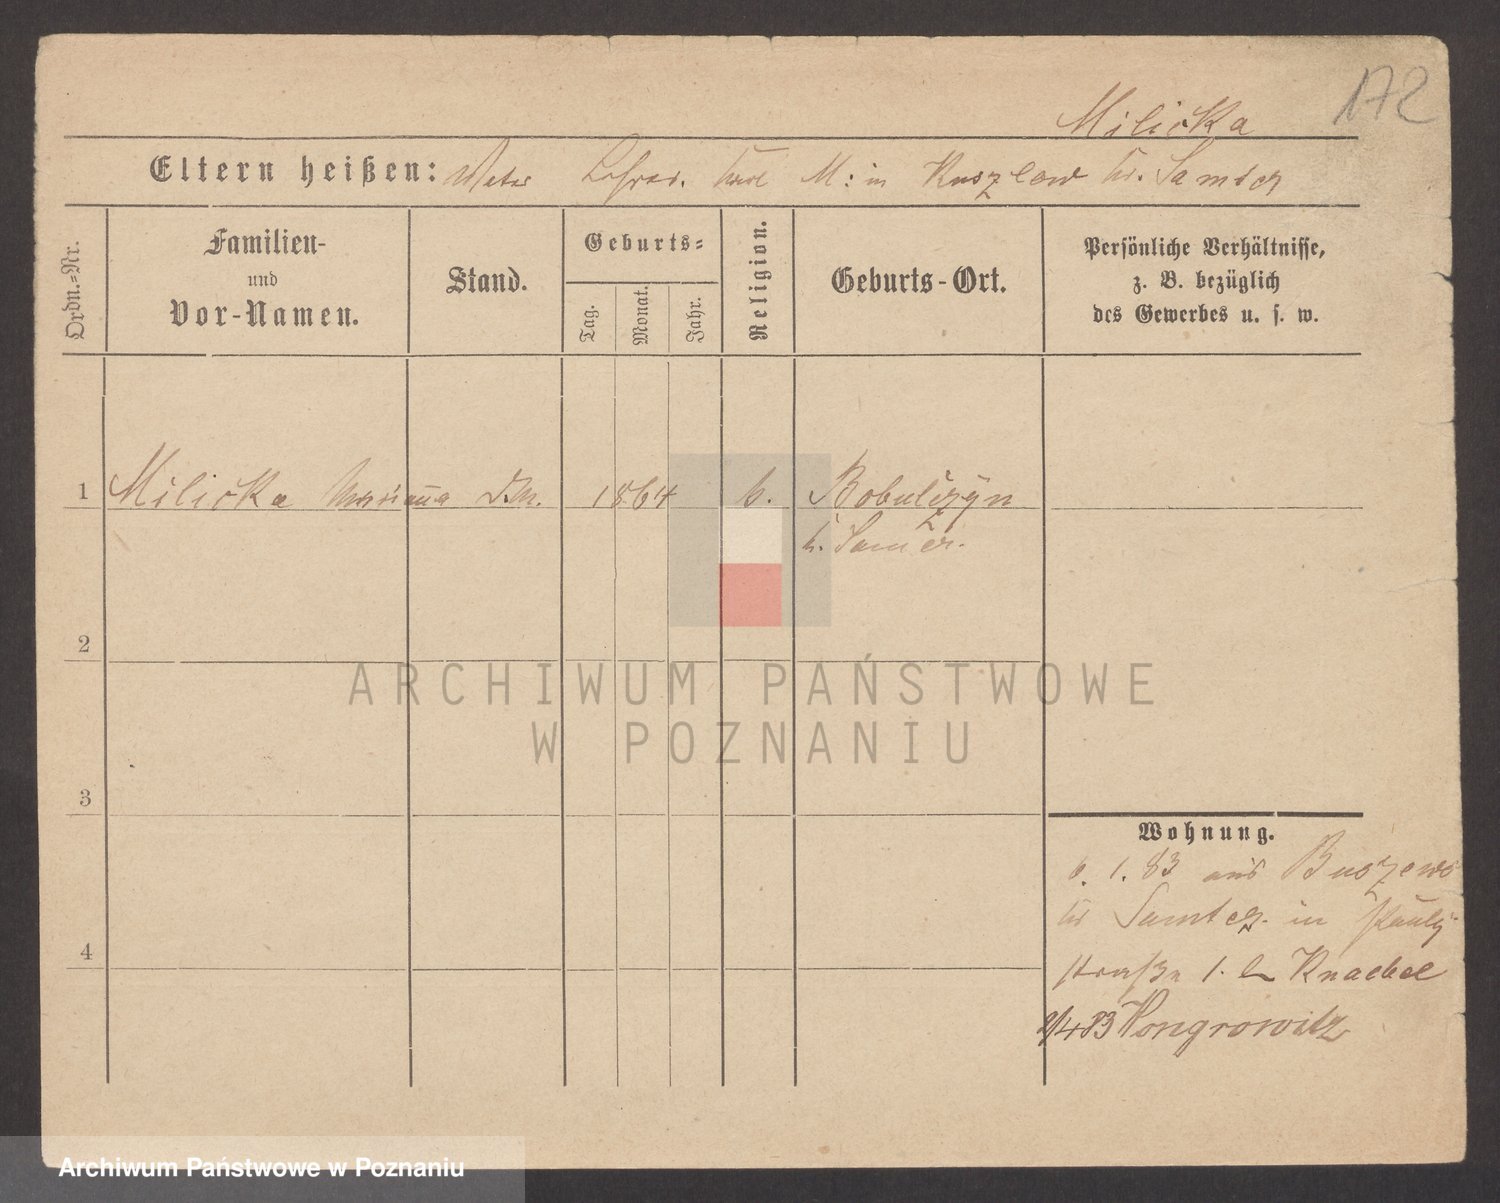 172
Milicka
Eltern heißen: Vater Lehrer. Karl M: in Kuszlow Kr. Samter
Ordn.-Nr.
Familien-
und
Vor-Namen.
Stand.
Geburts-
Tag.
Monat.
Jahr.
Religion.
Geburts-Ort.
Persönliche Verhältnisse,
z. B. bezüglich
des Gewerbes u. s. w.
1 Milicka Marianna D.M. 1864 k. Bobulczyn
k. Samter.
2
3
4
Wohnung.
6. 1. 83 aus Buszewo
Kr Samter. in Pauli
straße 1. b Knaebel
2/4 83 Wongrowitz
ARCHIWUM PAŃSTWOWE
W POZNANIU
Archiwum Państwowe w Poznaniu